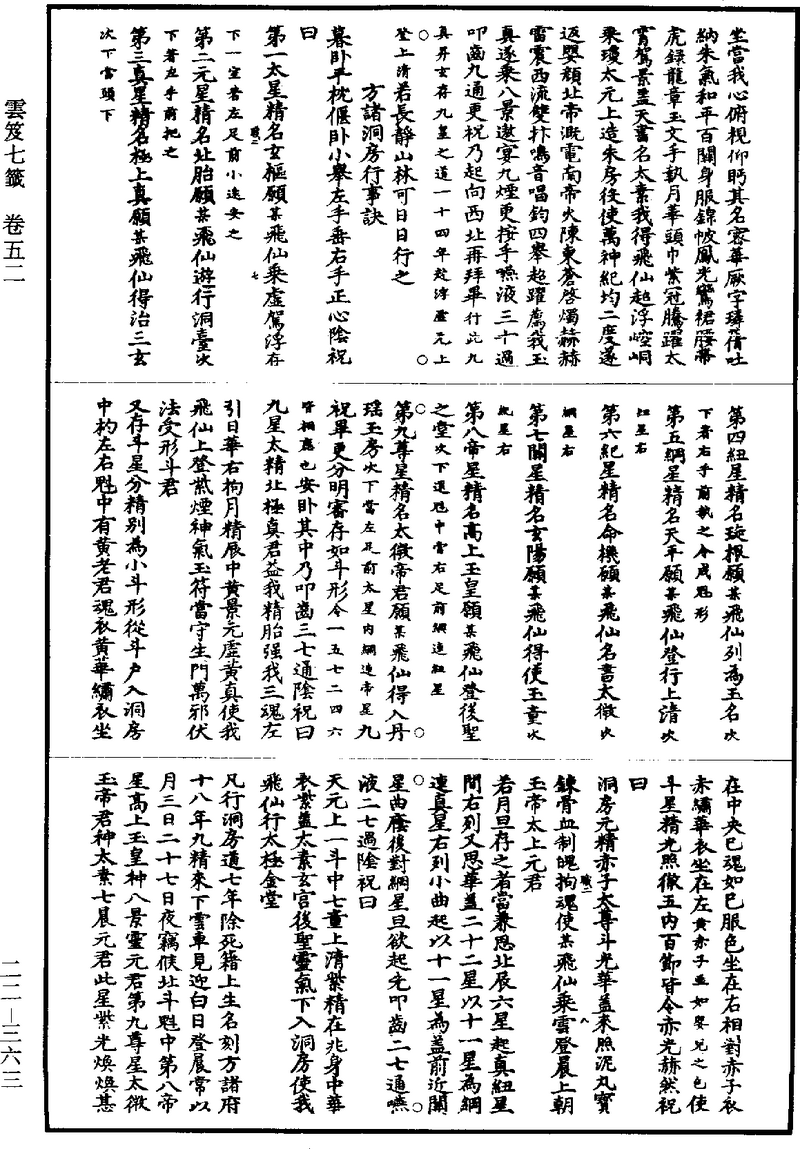 雲笈七籤 卷五二
二二—三六三
坐當我心俯視仰眄其名容華厥字瑋蒨吐
納朱氣和平百關身服錦帔鳳光鸞裙腰帶
虎錄龍章玉文手執月華頭巾紫冠騰躍太
霄駕景蓋天書名太素我得飛仙超浮崆峒
乘瓊太元上造朱房役使萬神紀均二度遂
返嬰顏北帝溉電南帝火陳東蒼啓燭赫赫
雷震西流雙抃鳴音唱鈞四舉超躍薦我玉
真遂乘八景遨宴九煙更按手嚥液三十過
叩齒九通更祝乃起向西北再拜畢行此九
真昇玄存九皇之道一十四年超浮虛元上
登上清若長靜山林可日日行之
方諸洞房行事訣
暮卧平枕偃卧小舉左手垂右手正心陰祝
曰
第一太星精名玄樞願某飛仙乘虛駕浮存
下一定著左足前小遠安之
第二元星精名北胎願某飛仙遊行洞臺次
下著左手前把之
第三真星精名極上真願某飛仙得治三玄
次下當頭下
第四紐星精名璇根願某飛仙列為玉名次
下著右手前執之令成魁形
第五綱星精名天平願某飛仙登行上清次
紐星右
第六紀星精名命機願某飛仙名書太微次
綱星右
第七關星精名玄陽願某飛仙得使玉童次
紀星右
第八帝星精名高上玉皇願某飛仙登後聖
之堂次下還魁中當右足前綱連紐星
第九尊星精名太微帝君願某飛仙得入丹
瑤玉房次下當左足前太星內綱連帝星九
祝畢更分明審存如斗形令一五七二四六
皆相應也安卧其中乃叩齒三七通陰祝曰
九星太精北極真君益我精胎强我三魂左
引日華右拘月精辰中黃景元虛黃真使我
飛仙上登紫煙神氣玉符當守生門萬邪伏
法受形斗君
又存斗星分精別為小斗形從斗户入洞房
中杓左右魁中有黃老君魂衣黃華繡衣坐
在中央已魂如已服色坐在右相對赤子衣
赤繡華衣坐在左黃赤子並如嬰兒之色使
斗星精光照徹五內百節皆令赤光赫然祝
曰
洞房元精赤子太尊斗光華蓋來照泥丸寶
錬骨血制魄拘魂使某飛仙乘雲登晨上朝
玉帝太上元君
若月旦存之者當兼思北辰六星起真紐星
間右列又思華蓋二十二星以十一星為綱
連真星右列小曲起以十一星為蓋前近關
星曲蔭後對綱星旦欲起先叩齒二七通嚥
液二七過陰祝曰
天元上一斗中七童上清紫精在兆身中華
衣紫蓋太素玄宮後聖靈氣下入洞房使我
飛仙行太極金堂
凡行洞房道七年除死籍上生名刻方諸府
十八年九精來下雲車見迎白日登晨常以
月三日二十七日夜竊候北斗魁中第八帝
星高上玉皇神八景靈元君第九尊星太微
玉帝君神太素七晨元君此星紫光煥煥甚